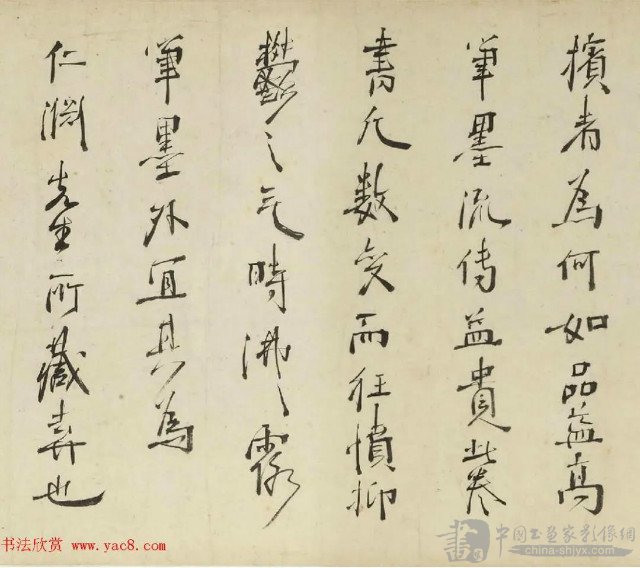 擯者為何如品益高
筆墨流傳益貴此卷
書凡數变而狂憤抑
鬱之气時沸沸露
筆墨外宜其為
仁淵先生所藏弆也
书法欣赏 www.yac8.com
中國书画家影像網
china-shjyx.com